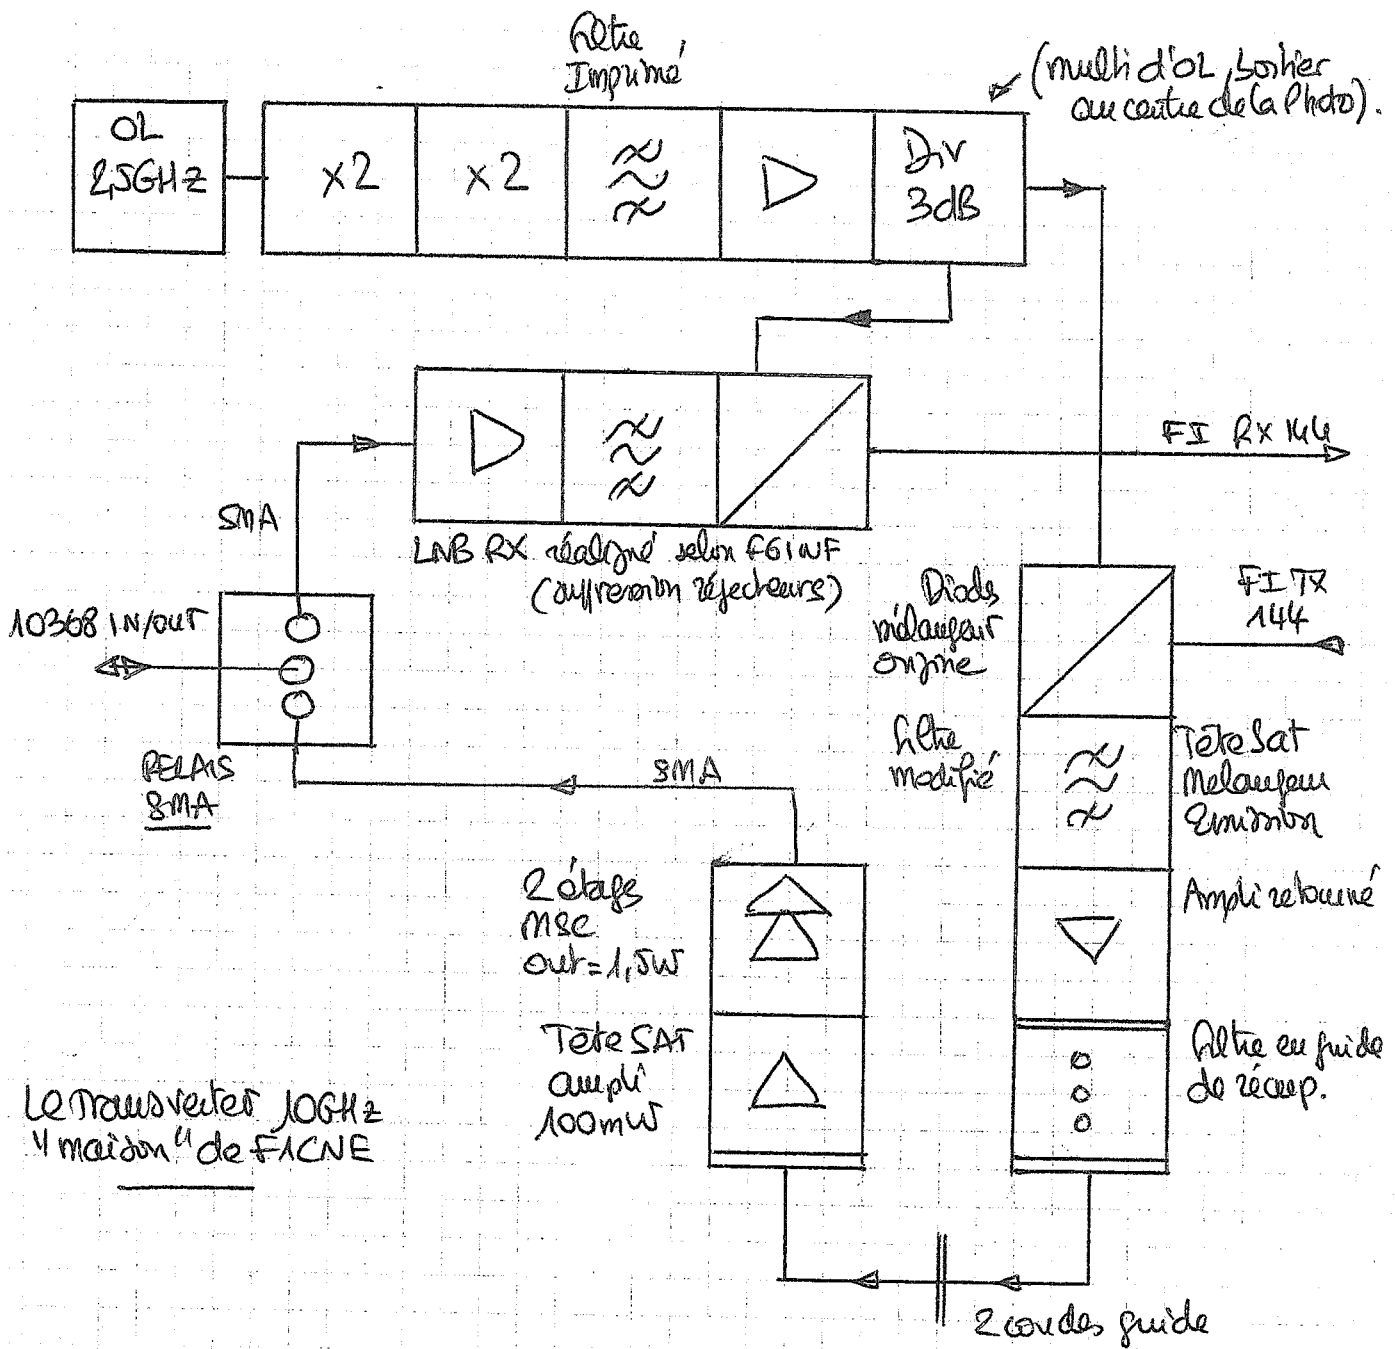 Filtre
Imprimé
(multi d'OL, boitier
au centre de la Photo).
OL
2,5GHZ
x2
x2
Div
3dB
FI RX 144
SMA
LNB RX réaligné selon F6INF
(suppression réjecteurs)
10368 IN/OUT
Diods
mélangeur
origine
FI TX
144
RELAIS
SMA
SMA
filtre
modifié
Tête Sat
Melangeur
Emission
2 étages
MSC
out=1,5W
Ampli retourné
Tête SAT
ampli
100mW
Filtre en guide
de récup.
Le Transverter 10GHz
"maison" de F1CNE
2 coudes guide